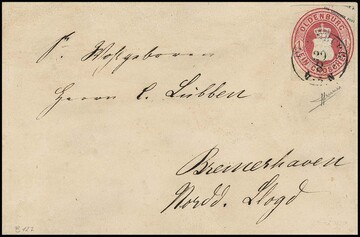 OLDENBURG
Sr. Wohlgeboren
Herrn C. Lübben
Bremerhaven
Nordd. Lloyd